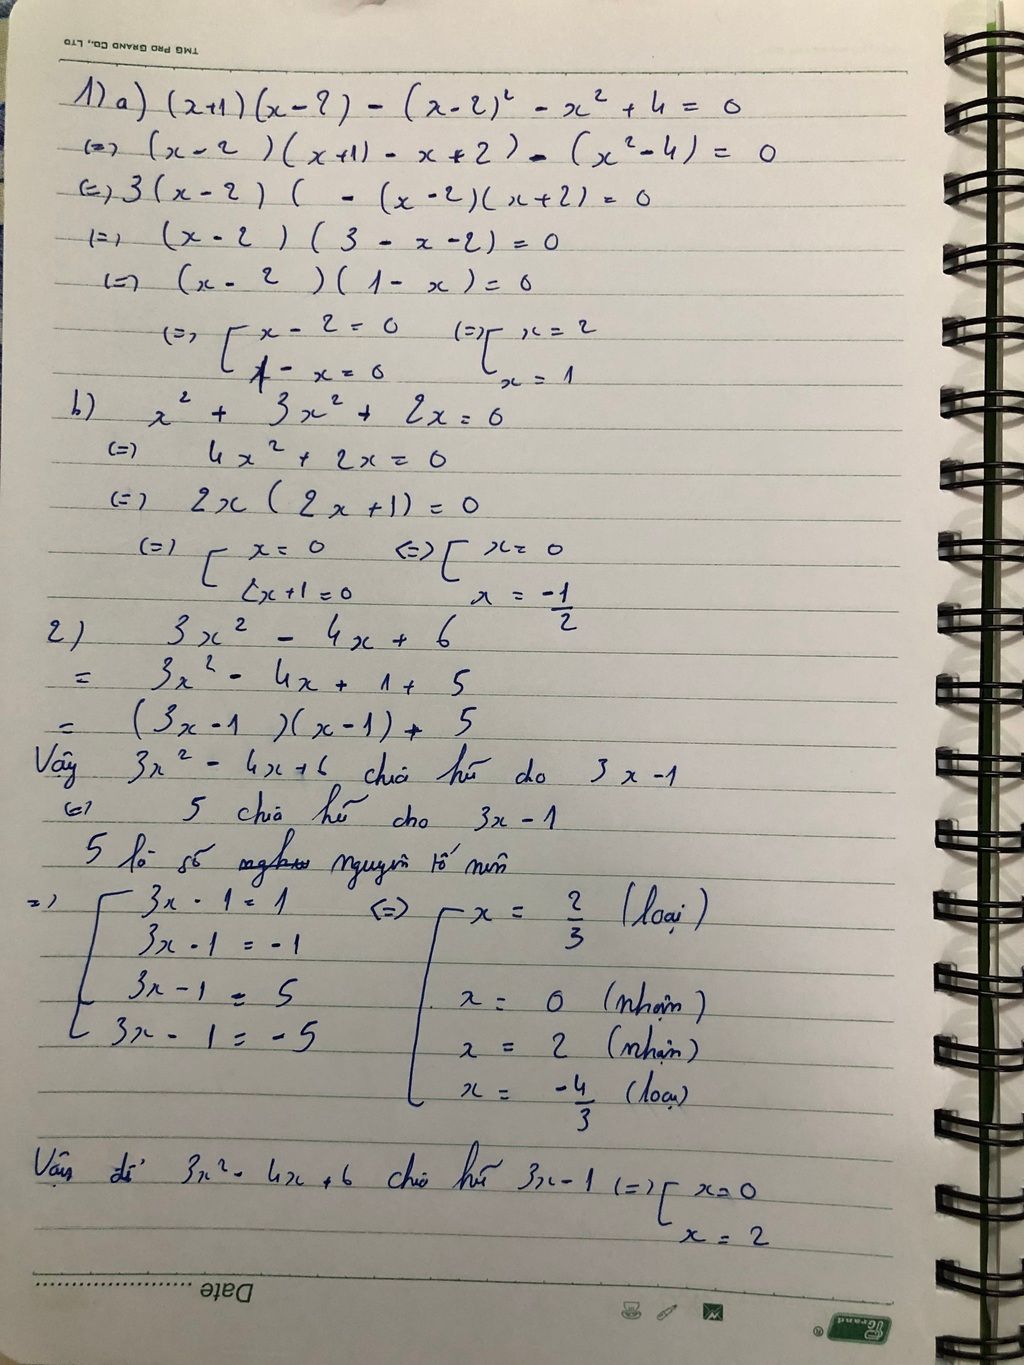 TMG PRO GRAND CO., LTD
1) a) (x+1)(x-2) - (x-2)² - x² + 4 = 0
(=) (x-2)(x+1) - x + 2) - (x²-4) = 0
(=) 3(x-2) ( - (x-2)(x+2) = 0
(=) (x-2)(3 - x - 2) = 0
(=) (x-2)(1-x) = 0
(=) [ x - 2 = 0 (=) [ x = 2
1 - x = 0 x = 1
b) x² + 3x² + 2x = 0
(=) 4x² + 2x = 0
(=) 2x(2x+1) = 0
(=) [ x = 0 (=) [ x = 0
2x+1 = 0 x = -1/2
2) 3x² - 4x + 6
= 3x² - 4x + 1 + 5
= (3x-1)(x-1) + 5
Vậy 3x² - 4x + 6 chia hết do 3x-1
(=) 5 chia hết cho 3x-1
5 là số nguyên tố nên
=) [ 3x-1 = 1 (=) [ x = 2/3 (loại)
3x-1 = -1
3x-1 = 5 x = 0 (nhận)
3x-1 = -5 x = 2 (nhận)
x = -4/3 (loại)
Vậy để 3x² - 4x + 6 chia hết 3x-1 (=) [ x = 0
x = 2
Date
Grand ®